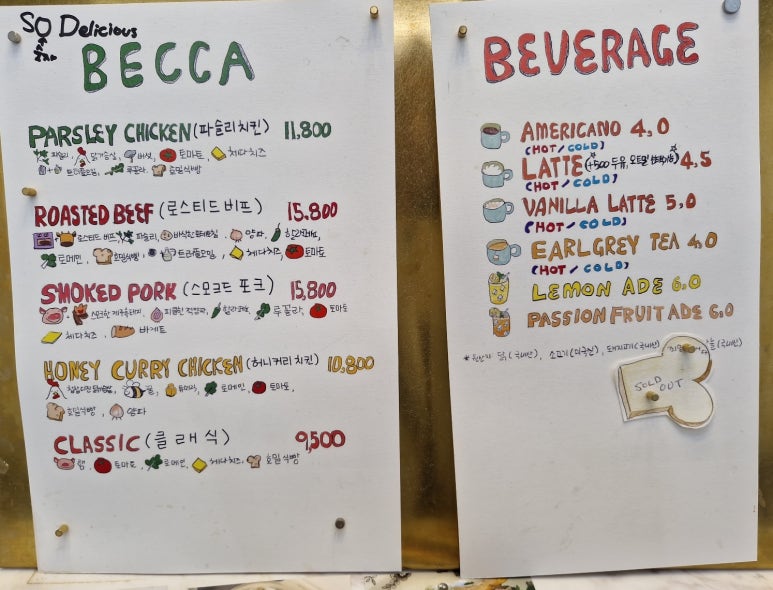 SO Delicious
BECCA
PARSLEY CHICKEN (파슬리치킨) 11,800
파슬리, 닭가슴살, 버섯, 토마토, 체다치즈
트러플오일, 루꼴라, 호밀식빵
ROASTED BEEF (로스티드비프) 15.800
로스티드 비프, 파슬리, 양파, 할라피뇨,
로메인, 호밀식빵, 트러플오일, 체다치즈, 토마토
SMOKED PORK (스모크드 포크) 15,800
할라피뇨, 루꼴라, 토마토
체다치즈, 바게트
HONEY CURRY CHICKEN (허니커리치킨) 10,800
꿀, 로메인, 토마토,
호밀식빵, 양파
CLASSIC (클래식) 9,500
햄, 토마토, 로메인, 체다치즈, 호밀식빵
BEVERAGE
AMERICANO 4,0
(HOT/COLD)
LATTE (+500 두유, 오트밀) 4,5
(HOT/COLD)
VANILLA LATTE 5,0
(HOT/COLD)
EARLGREY TEA 4,0
(HOT/COLD)
LEMON ADE 6,0
PASSION FRUIT ADE 6,0
*원산지 닭(국내산), 소고기(미국산), 돼지고기(국내산) (국내산)
SOLD OUT